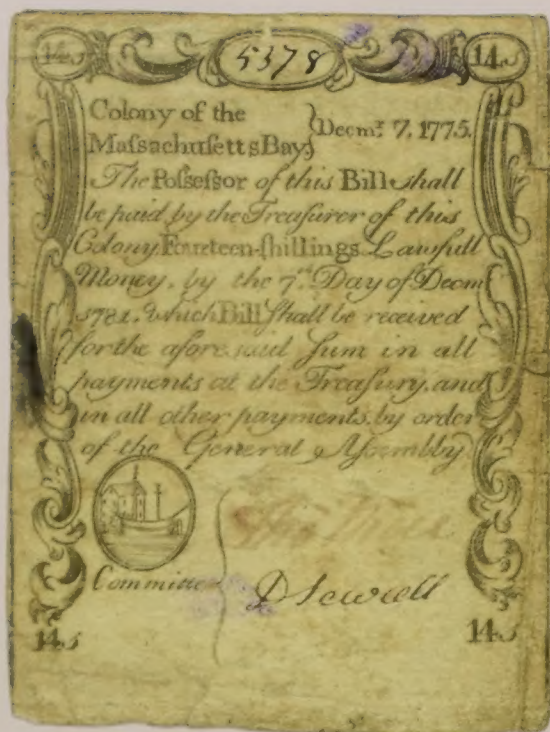 14s 5378 14s
Colony of the
Maſsachuſetts Bay} Decmr. 7, 1775.
The Poſseſsor of this Bill ſhall
be paid by the Treaſurer of this
Colony Fourteen-ſhillings Lawfull
Money, by the 7th. Day of Decm
1781. which Bill ſhall be received
for the aforeſaid ſum in all
payments at the Treaſury, and
in all other payments, by order
of the General Aſsembly
Committee D Sewall
14s 14s